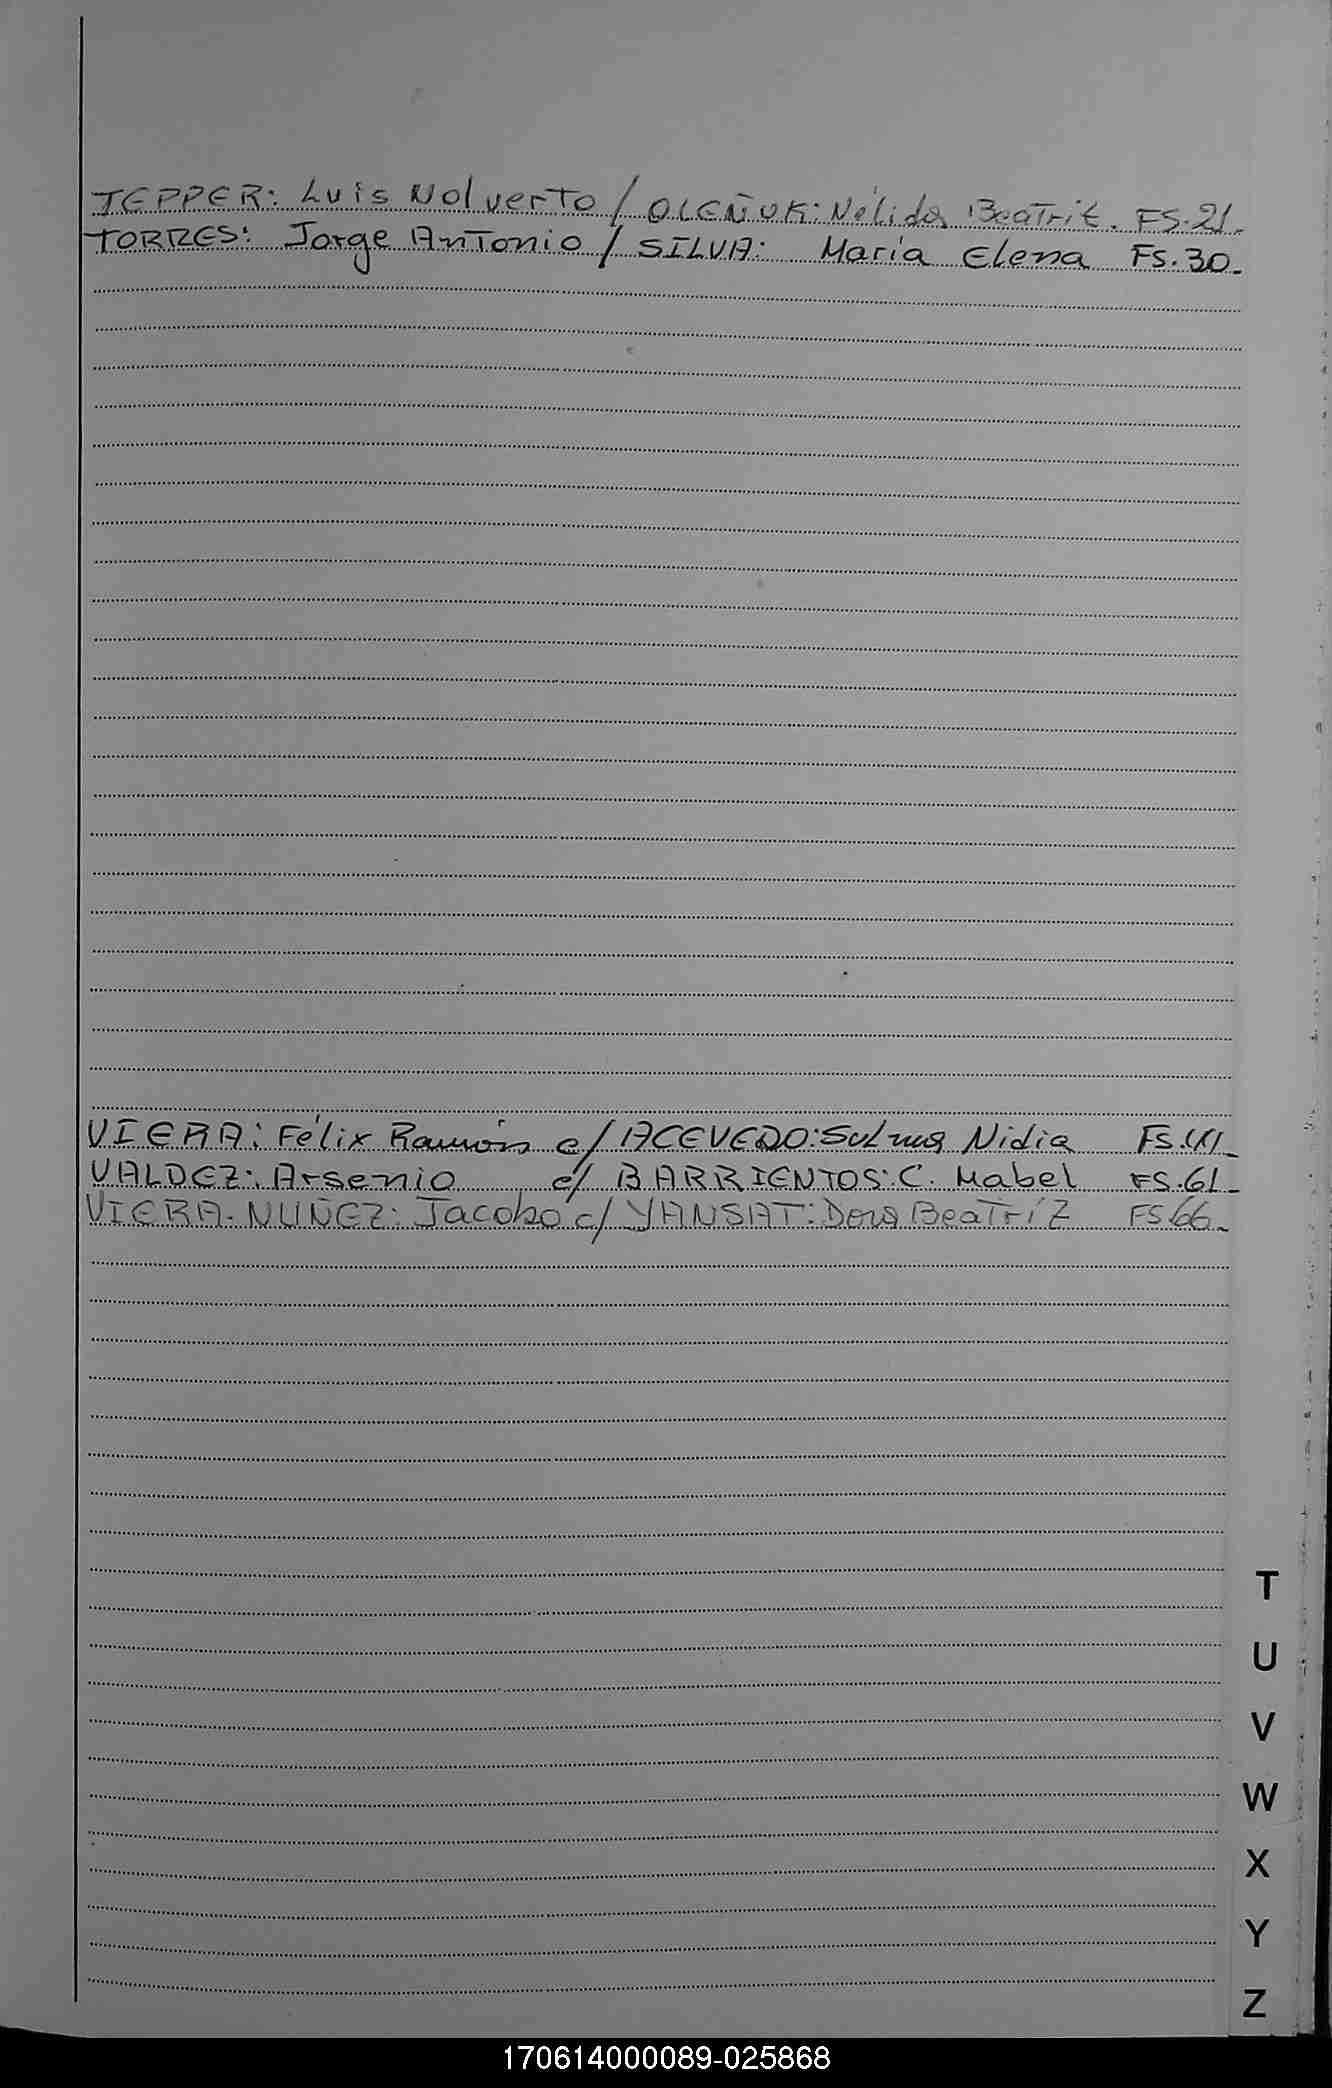 TEPPER: Luis Nolverto / OLEÑUK: Nélida Beatriz. FS. 21.
TORRES: Jorge Antonio / SILVA: María Elena FS. 30.
VIERA: Félix Ramón c/ ACEVEDO: Sulma Nidia FS.
VALDEZ: Arsenio c/ BARRIENTOS: C. Mabel FS. 61.
VIERA. NUÑEZ: Jacobo c/ YANSAT: Dora BeaTríz FS. 66.
T
U
V
W
X
Y
Z
170614000089-025868